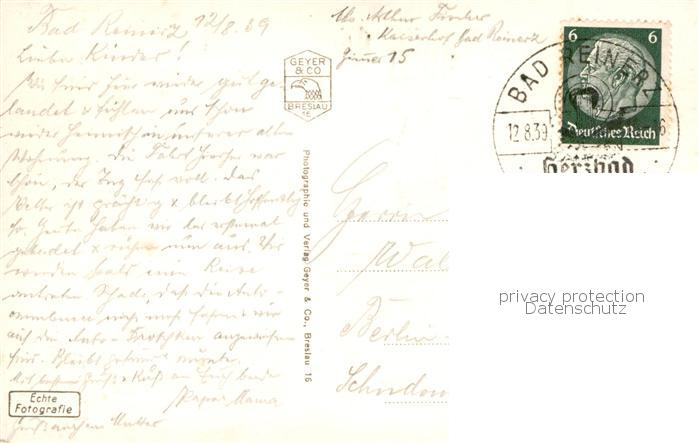 Bad Reinerz 12/8.39
Liebe Kinder!
Wir sind hier wieder gut ge-
landet & fühlen uns schon
wieder heimisch in unserer alten
Wohnung. Die Fahrt hierher war
schön, der Zug sehr voll. Das
Wetter ist prächtig & bleibt hoffentlich
so. Heute haben wir das erstemal
gebadet & ruhen nun aus. Wir
werden bald eine Reise
antreten. Schade, daß die Auto-
omnibusse noch nicht fahren & wir
auf die Auto-Droschken angewiesen
sind. Bleibt gesund
Mit besten Grüß & Kuß an Euch beide
Papa Mama
Mutter
Echte
Fotografie
GEYER
& CO
BRESLAU
16
Photographie und Verlag Geyer & Co., Breslau 16
Abs. Arthur Fischer
Kaiserhof Bad Reinerz
Zimmer 15
6 6
Deutsches Reich
BAD REINERZ
12.8.39
Herzbad
Berlin-
privacy protection
Datenschutz